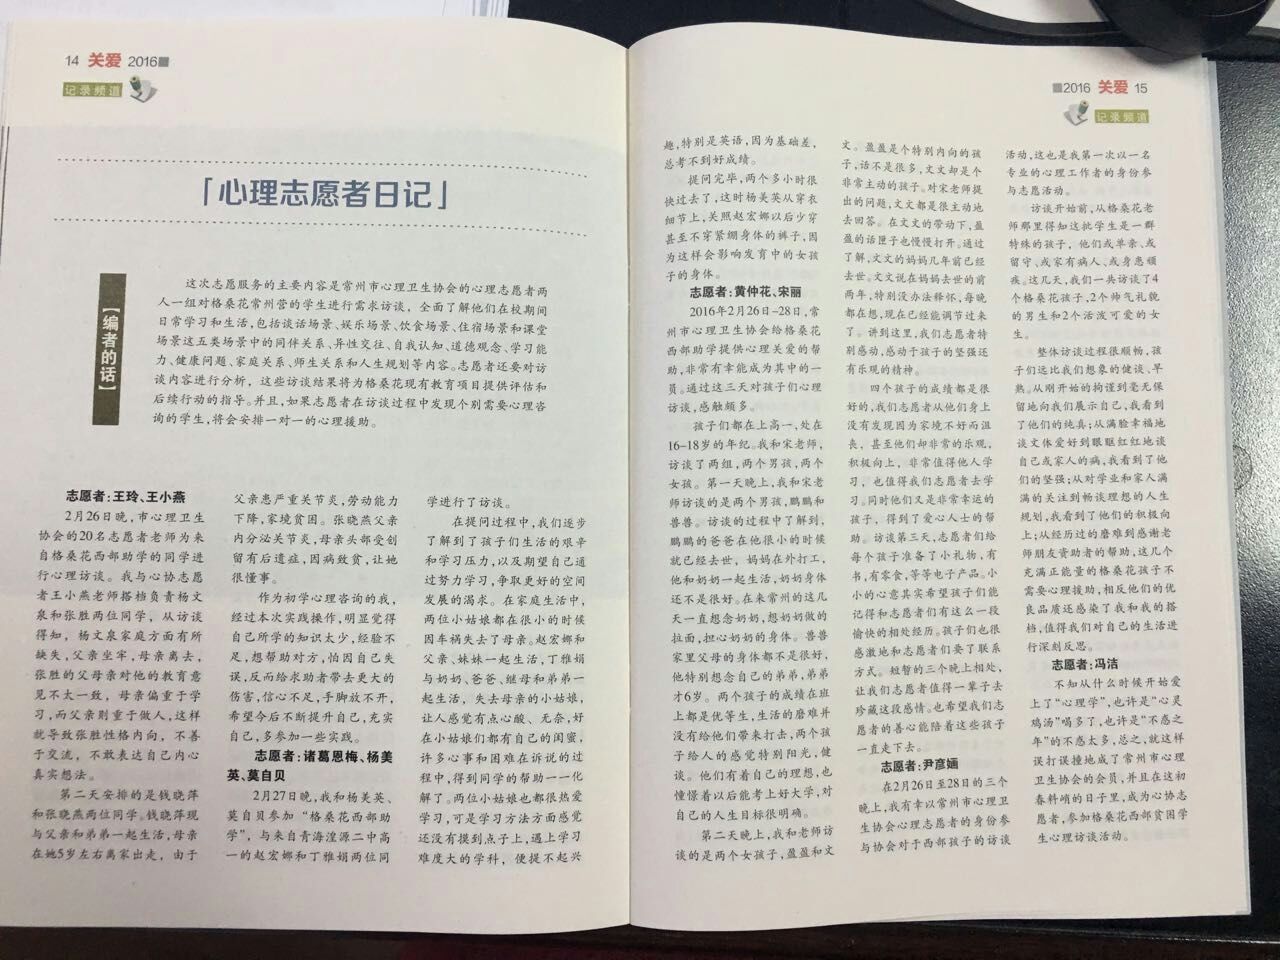 14 关爱 2016■
记录频道
「心理志愿者日记」
【编者的话】
这次志愿服务的主要内容是常州市心理卫生协会的心理志愿者两
人一组对格桑花常州营的学生进行需求访谈，全面了解他们在校期间
日常学习和生活,包括谈话场景、娱乐场景、饮食场景、住宿场景和课堂
场景这五类场景中的同伴关系、异性交往、自我认知、道德观念、学习能
力、健康问题、家庭关系、师生关系和人生规划等内容。志愿者还要对访
谈内容进行分析，这些访谈结果将为格桑花现有教育项目提供评估和
后续行动的指导。并且,如果志愿者在访谈过程中发现个别需要心理咨
询的学生,将会安排一对一的心理援助。
志愿者:王玲、王小燕
2月26日晚,市心理卫生
协会的20名志愿者老师为来
自格桑花西部助学的同学进
行心理访谈。我与心协志愿
者王小燕老师搭档负责杨文
泉和张胜两位同学，从访谈
得知，杨文泉家庭方面有所
缺失,父亲坐牢,母亲离去,
张胜的父母亲对他的教育意
见不太一致，母亲偏重于学
习,而父亲则重于做人,这样
就导致张胜性格内向，不善
于交流，不敢表达自己内心
真实想法。
第二天安排的是钱晓萍
和张晓燕两位同学。钱晓萍现
与父亲和弟弟一起生活,母亲
在她5岁左右离家出走，由于
父亲患严重关节炎,劳动能力
下降,家境贫困。张晓燕父亲
内分泌关节炎,母亲头部受创
留有后遗症,因病致贫,让她
很懂事。
作为初学心理咨询的我,
经过本次实践操作,明显觉得
自己所学的知识太少,经验不
足,想帮助对方,怕因自己失
误,反而给求助者带去更大的
伤害,信心不足,手脚放不开,
希望今后不断提升自己,充实
自己,多参加一些实践。
志愿者:诸葛恩梅、杨美
英、莫自贝
2月27日晚,我和杨美英、
莫自贝参加“格桑花西部助
学”，与来自青海湟源二中高
一的赵宏娜和丁雅娟两位同
学进行了访谈。
在提问过程中,我们逐步
了解到了孩子们生活的艰辛
和学习压力,以及期望自己通
过努力学习,争取更好的空间
发展的渴求。在家庭生活中,
两位小姑娘都在很小的时候
因车祸失去了母亲。赵宏娜和
父亲、妹妹一起生活,丁雅娟
与奶奶、爸爸、继母和弟弟一
起生活，失去母亲的小姑娘,
让人感觉有点心酸、无奈,好
在小姑娘们都有自己的闺蜜,
许多心事和困难在诉说的过
程中,得到同学的帮助一一化
解了。两位小姑娘也都很热爱
学习,可是学习方法方面感觉
还没有摸到点子上,遇上学习
难度大的学科，便提不起兴
■2016 关爱 15
记录频道
趣,特别是英语,因为基础差,
总考不到好成绩。
提问完毕,两个多小时很
快过去了,这时杨美英从穿衣
细节上,关照赵宏娜以后少穿
甚至不穿紧绷身体的裤子,因
为这样会影响发育中的女孩
子的身体。
志愿者:黄仲花、宋丽
2016年2月26日-28日,常
州市心理卫生协会给格桑花
西部助学提供心理关爱的帮
助,非常有幸能成为其中的一
员。通过这三天对孩子们心理
访谈,感触颇多。
孩子们都在上高一,处在
16-18岁的年纪。我和宋老师,
访谈了两组,两个男孩,两个
女孩。第一天晚上,我和宋老
师访谈的是两个男孩,鹏鹏和
善善。访谈的过程中了解到,
鹏鹏的爸爸在他很小的时候
就已经去世，妈妈在外打工,
他和奶奶一起生活,奶奶身体
还不是很好。在来常州的这几
天一直想念奶奶,想奶奶做的
拉面,担心奶奶的身体。善善
家里父母的身体都不是很好,
他特别想念自己的弟弟,弟弟
才6岁。两个孩子的成绩在班
上都是优等生,生活的磨难并
没有给他们带来打击,两个孩
子给人的感觉特别阳光,健
谈。他们有着自己的理想,也
憧憬着以后能考上好大学,对
自己的人生目标很明确。
第二天晚上,我和老师访
谈的是两个女孩子,盈盈和文
文。盈盈是个特别内向的孩
子,话不是很多,文文却是个
非常主动的孩子。对宋老师提
出的问题,文文都是很主动地
去回答。在文文的带动下,盈
盈的话匣子也慢慢打开。通过
了解,文文的妈妈几年前已经
去世。文文说在妈妈去世的前
两年,特别没办法释怀,每晚
都在想,现在已经能调节过来
了。讲到这里,我们志愿者特
别感动,感动于孩子的坚强还
有乐观的精神。
四个孩子的成绩都是很
好的,我们志愿者从他们身上
没有发现因为家境不好而沮
丧，甚至他们却非常的乐观,
积极向上，非常值得他人学
习，也值得我们志愿者去学
习。同时他们又是非常幸运的
孩子，得到了爱心人士的帮
助。访谈第三天,志愿者们给
每个孩子准备了小礼物,有
书,有零食,等等电子产品。小
小的心意其实希望孩子们能
记得和志愿者们有这么一段
愉快的相处经历。孩子们也很
感激地和志愿者们要了联系
方式。短暂的三个晚上相处,
让我们志愿者值得一辈子去
珍藏这段感情。也希望我们志
愿者的善心能陪着这些孩子
一直走下去。
志愿者:尹彦婳
在2月26日至28日的三个
晚上,我有幸以常州市心理卫
生协会心理志愿者的身份参
与协会对于西部孩子的访谈
活动,这也是我第一次以一名
专业的心理工作者的身份参
与志愿活动。
访谈开始前,从格桑花老
师那里得知这批学生是一群
特殊的孩子，他们或单亲、或
留守、或家有病人、或身患顽
疾。这几天,我们一共访谈了4
个格桑花孩子,2个帅气礼貌
的男生和2个活泼可爱的女
生。
整体访谈过程很顺畅,孩
子们远比我们想象的健谈、早
熟。从刚开始的拘谨到毫无保
留地向我们展示自己,我看到
了他们的纯真;从满脸幸福地
谈文体爱好到眼眶红红地谈
自己或家人的病,我看到了他
们的坚强;从对学业和家人满
满的关注到畅谈理想的人生
规划,我看到了他们的积极向
上;从经历过的磨难到感谢老
师朋友资助者的帮助,这几个
充满正能量的格桑花孩子不
需要心理援助,相反他们的优
良品质还感染了我和我的搭
档,值得我们对自己的生活进
行深刻反思。
志愿者:冯洁
不知从什么时候开始爱
上了“心理学”,也许是“心灵
鸡汤”喝多了,也许是“不惑之
年”的不惑太多,总之,就这样
误打误撞地成了常州市心理
卫生协会的会员,并且在这初
春料峭的日子里,成为心协志
愿者,参加格桑花西部贫困学
生心理访谈活动。